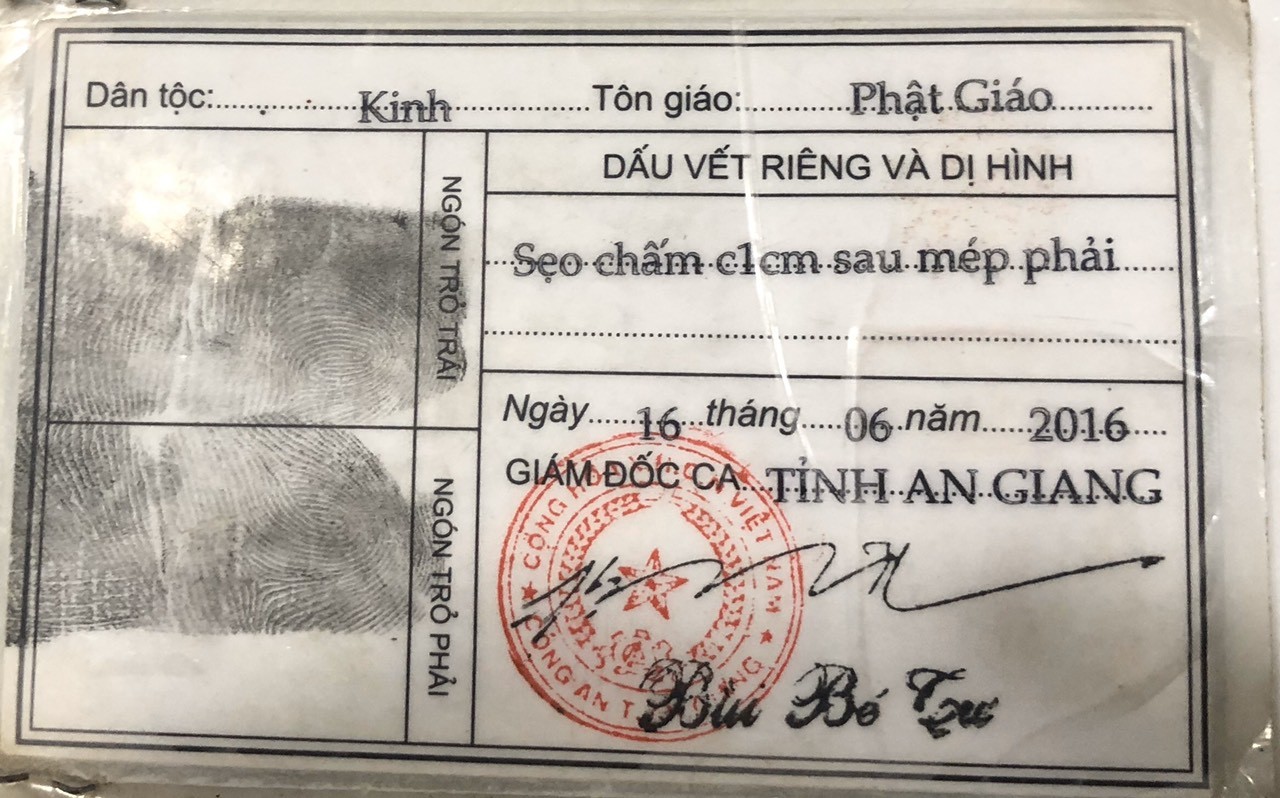 Dân tộc: Kinh Tôn giáo: Phật Giáo
NGÓN TRỎ TRÁI
DẤU VẾT RIÊNG VÀ DỊ HÌNH
Sẹo chấm c1cm sau mép phải
NGÓN TRỎ PHẢI
Ngày 16 tháng 06 năm 2016
GIÁM ĐỐC CA TỈNH AN GIANG
CÔNG VIỆT NAM
CÔNG AN
Bùi Bé Tư